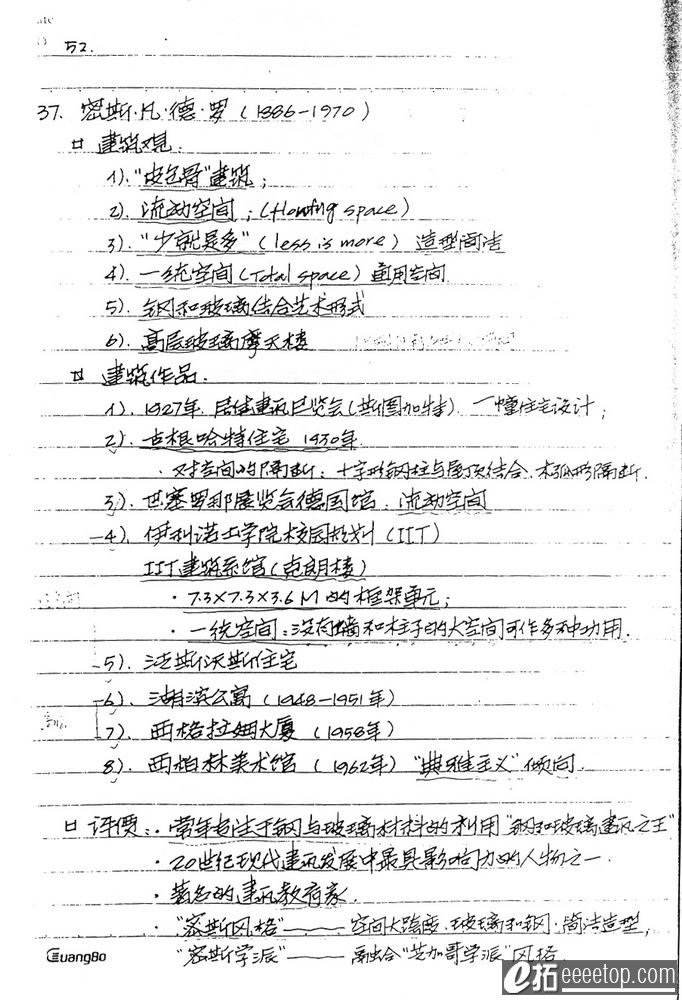 52.
37. 密斯·凡·德·罗 (1886-1970)
建筑观.
1). "皮包骨"建筑;
2). 流动空间; (flowing space)
3). "少就是多" (less is more) 造型简洁
4). 一统空间 (Total space) 通用空间
5). 钢和玻璃结合艺术形式
6). 高层玻璃摩天楼
建筑作品.
1). 1927年. 居住建筑展览会(斯图加特). 一幢住宅设计;
2). 吐根哈特住宅 1930年.
· 对空间的隔断: 十字形钢柱与屋顶结合. 木弧形隔断.
3). 巴塞罗那展览会德国馆. 流动空间
4). 伊利诺工学院校园规划 (IIT)
IIT建筑系馆(克朗楼)
· 7.3×7.3×3.6M的框架单元;
· 一统空间: 没有墙和柱子的大空间可作多种功用.
5). 法斯沃斯住宅
6). 湖滨公寓 (1948-1951年)
7). 西格拉姆大厦 (1958年)
8). 西柏林美术馆 (1962年) "典雅主义"倾向.
评价: · 常年专注于钢与玻璃材料的利用 "钢和玻璃建筑之王"
· 20世纪现代建筑发展中最具影响力的人物之一.
· 著名的建筑教育家.
· "密斯风格" —— 空间大跨度. 玻璃和钢. 简洁造型,
"密斯学派" —— 融合"芝加哥学派"风格.
GuangBo
e拓 eeeetop.com